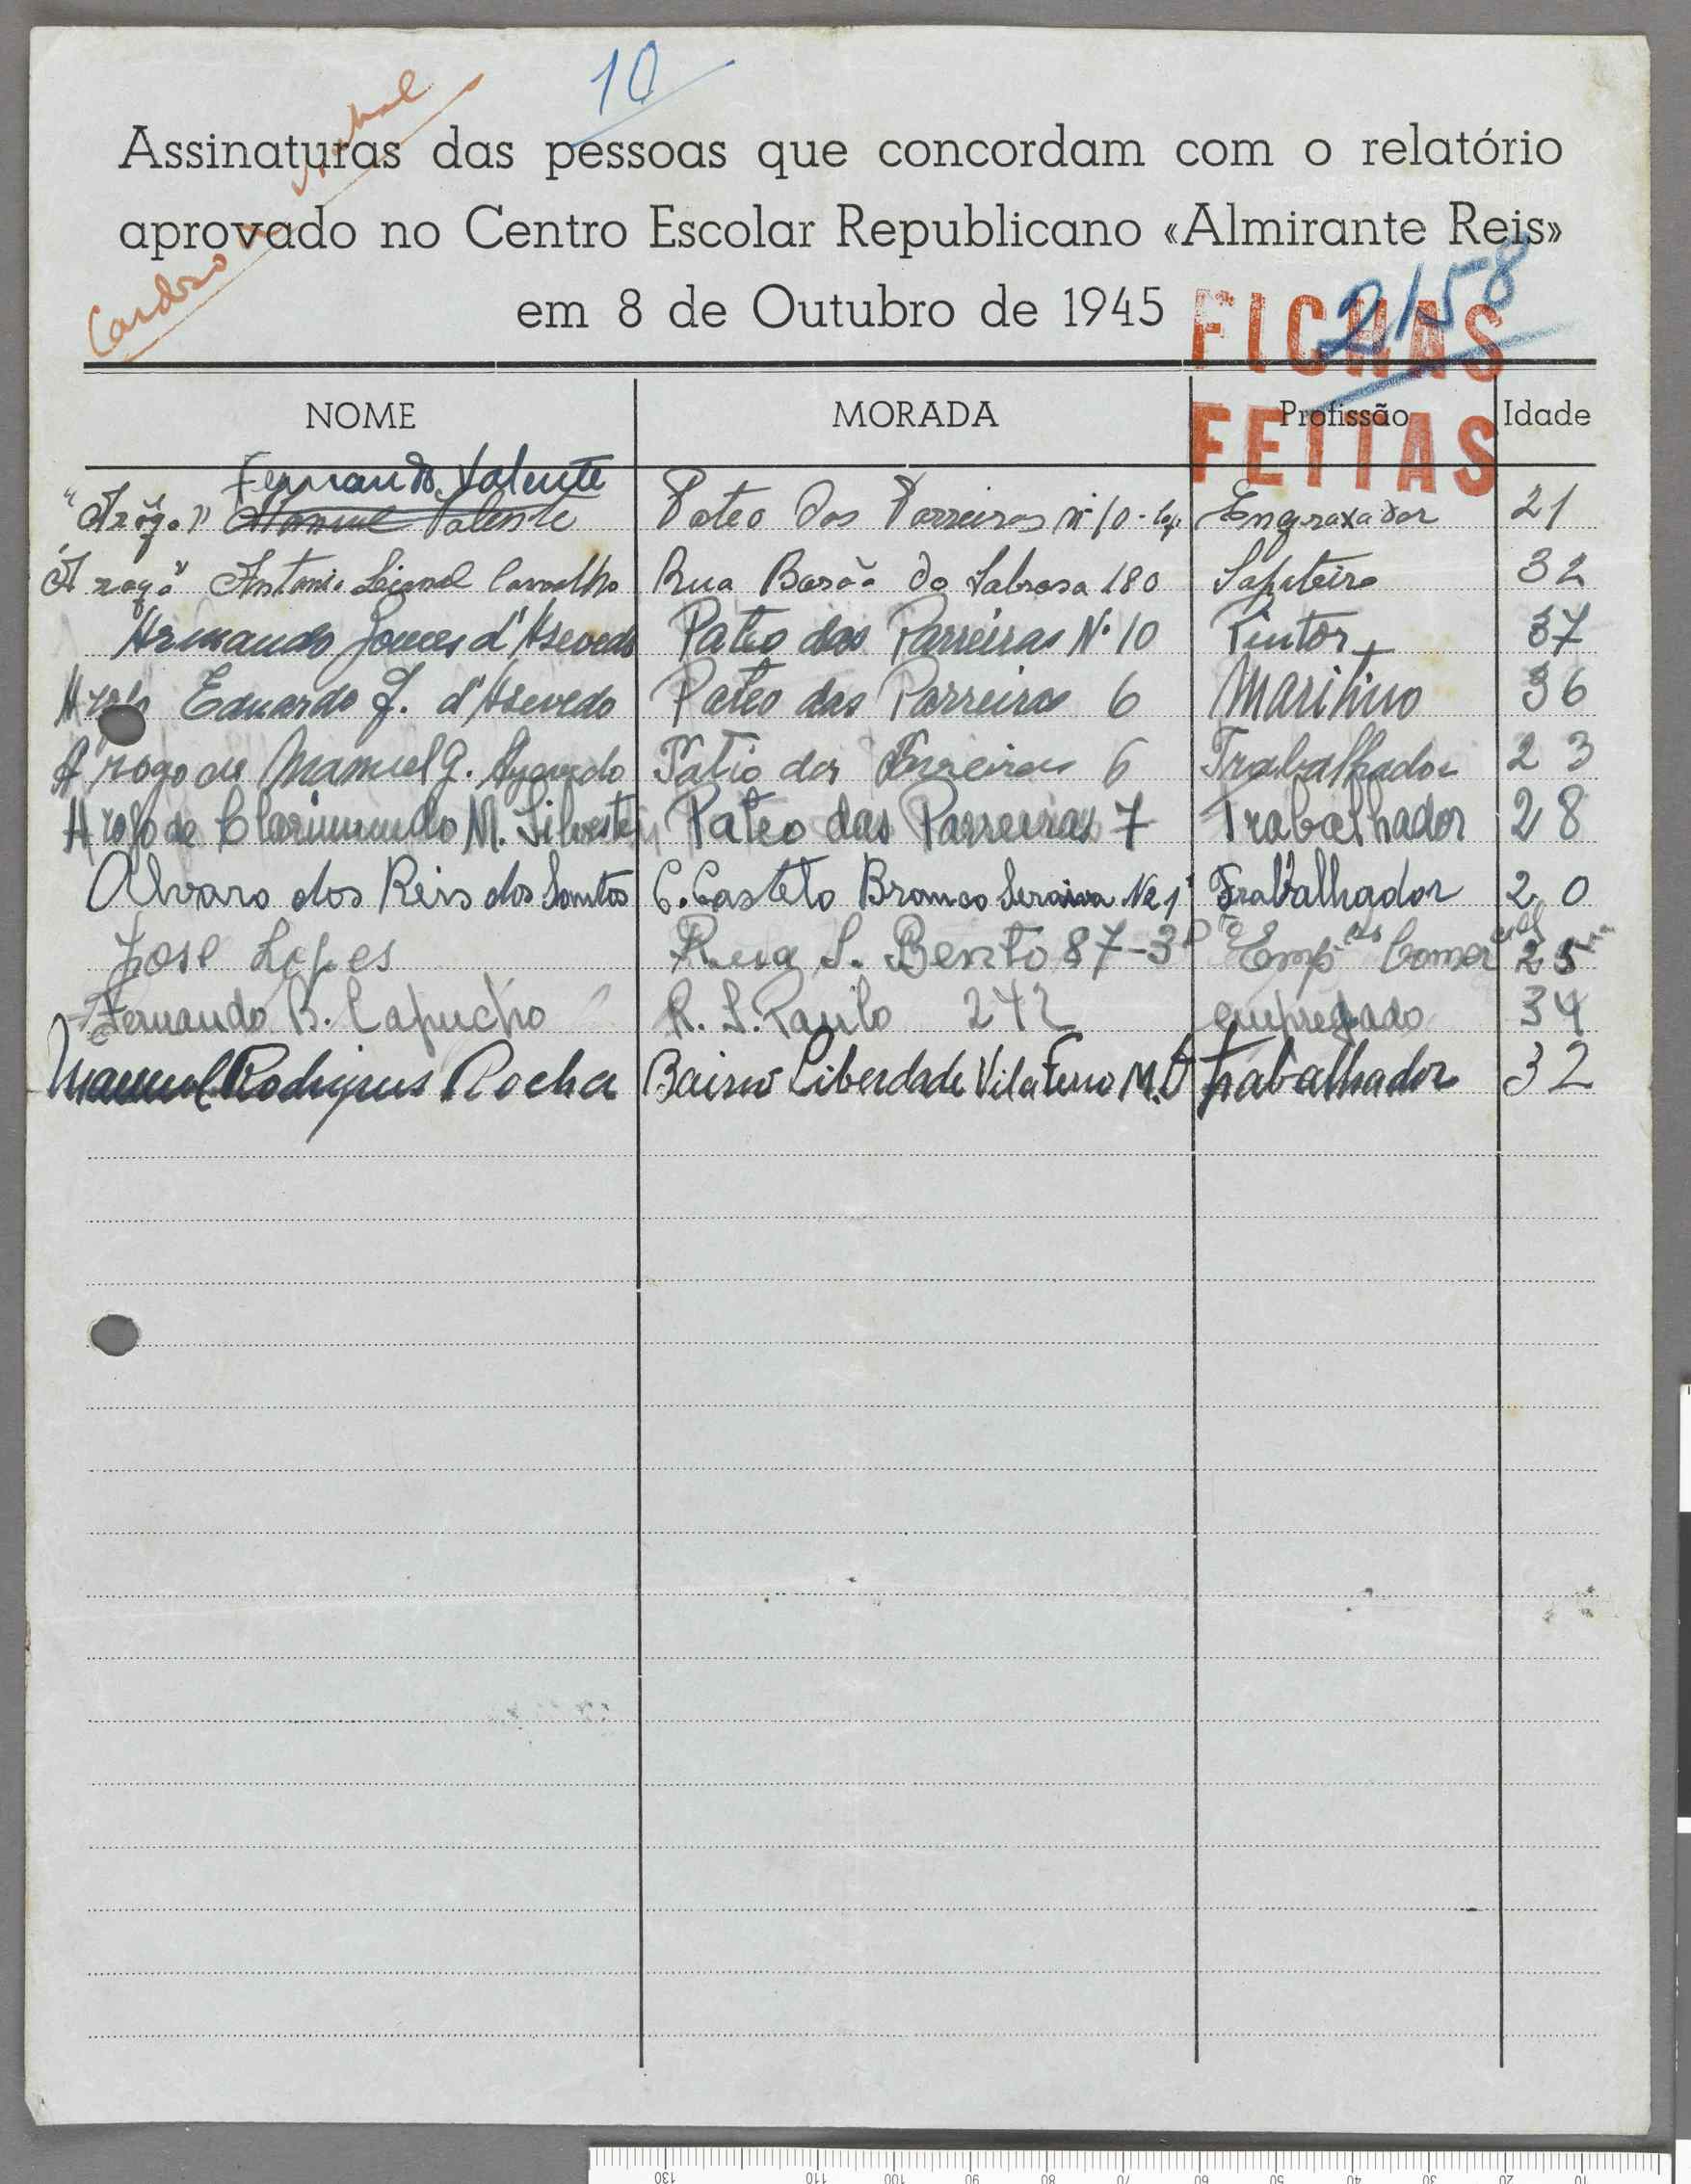 10
Assinaturas das pessoas que concordam com o relatório
aprovado no Centro Escolar Republicano «Almirante Reis»
em 8 de Outubro de 1945
Cardoso
2158
FICHAS
FEITAS
NOME MORADA Profissão Idade
Fernando Valente
"A rôgo" Manuel Valente Pateo Das Parreiras Nº 10 - Engraxador 21
"A rogo" Antonio Leonel Carvalho Rua Barão do Sabrosa 180 Sapateiro 32
Armando Gomes d'Asevedo Pateo das Parreiras Nº 10 Pintor 37
A rogo Eduardo J. d'Asevedo Pateo das Parreiras 6 Maritimo 36
A rogo de Manuel G. Azevedo Patio das Parreiras 6 Trabalhador 23
A rogo de Clarimundo M. Silvestre Pateo das Parreiras 7 Trabalhador 28
Alvaro dos Reis dos Santos C. Castelo Branco Saraiva Nº 1 Trabalhador 20
Jose Lopes Rua S. Bento 87-3º Empº Comercial 25
Fernando B. Capucho R. S. Paulo 242 empregado 34
Manuel Rodrigues Rocha Bairro Liberdade Vila Ferro M.D trabalhador 32
130 110 100 90 80 70 60 50 40 30 20 10